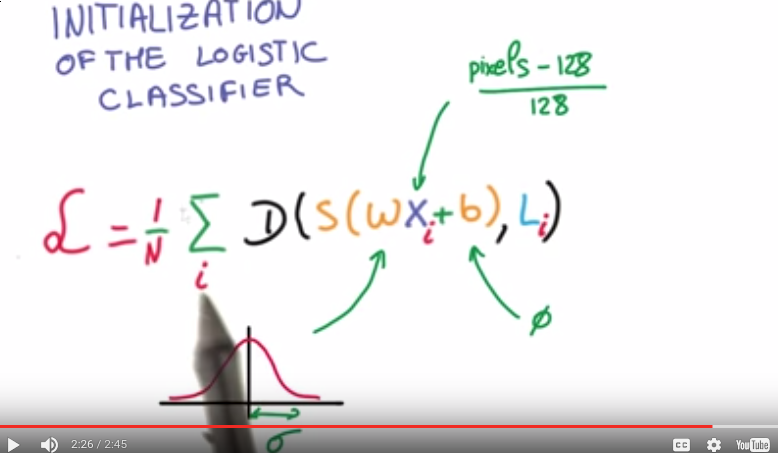 INITIALIZATION
OF THE LOGISTIC
CLASSIFIER
pixels - 128
128
ℒ = 1/N Σ_i D(S(WX_i + b), L_i)
φ
σ
2:26 / 2:45
CC
YouTube